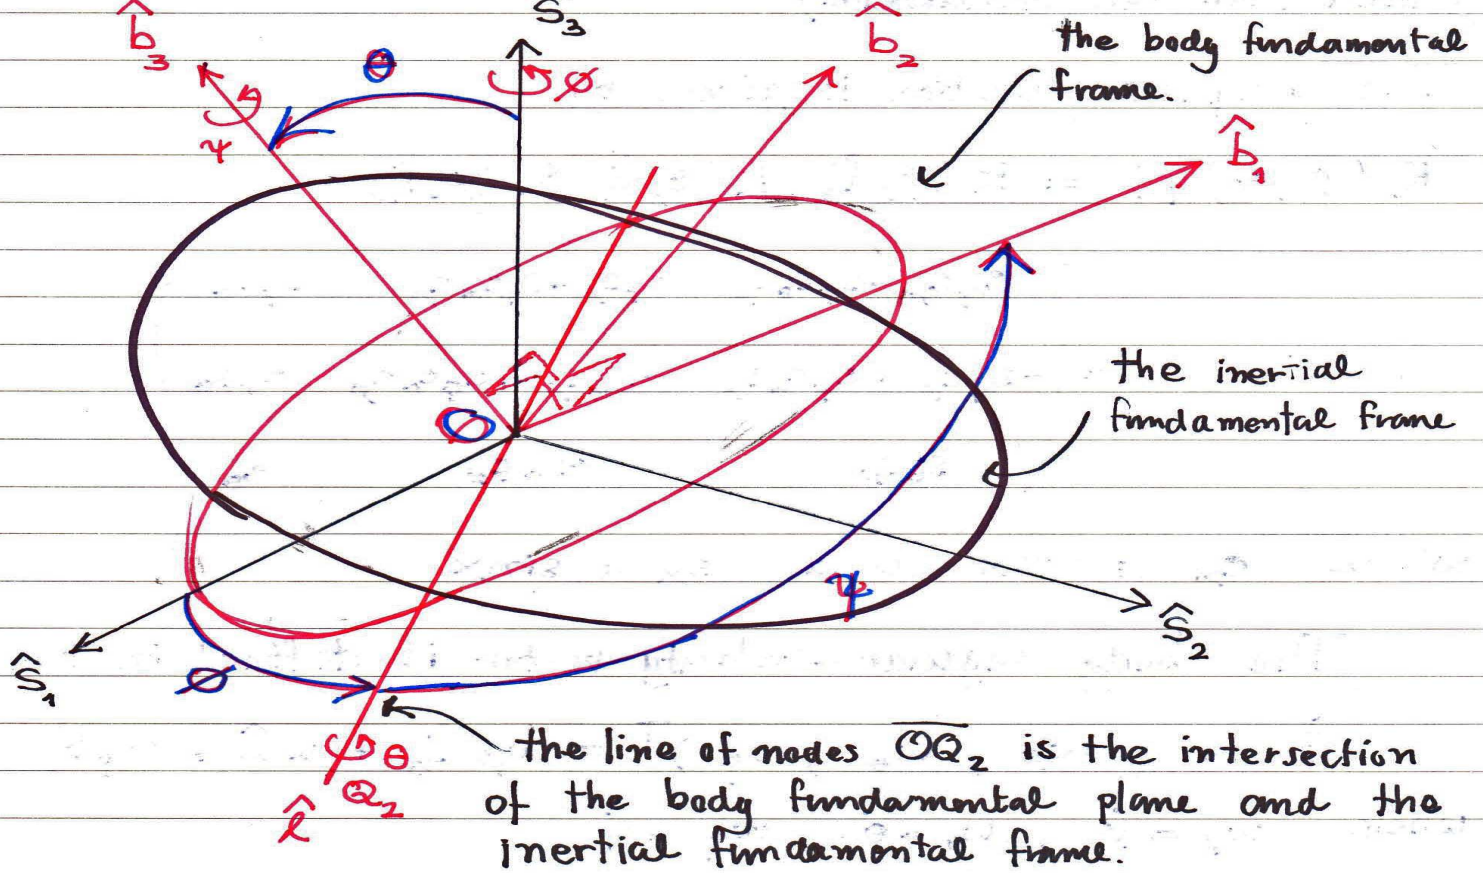 b̂₃
θ
S₃
φ
b̂₂
the body fundamental
frame.
b̂₁
ψ
the inertial
fundamental frame
O
ψ
Ŝ₂
Ŝ₁
φ
the line of nodes O̅Q̅₂ is the intersection
θ
Q₂
of the body fundamental plane and the
l̂
inertial fundamental frame.